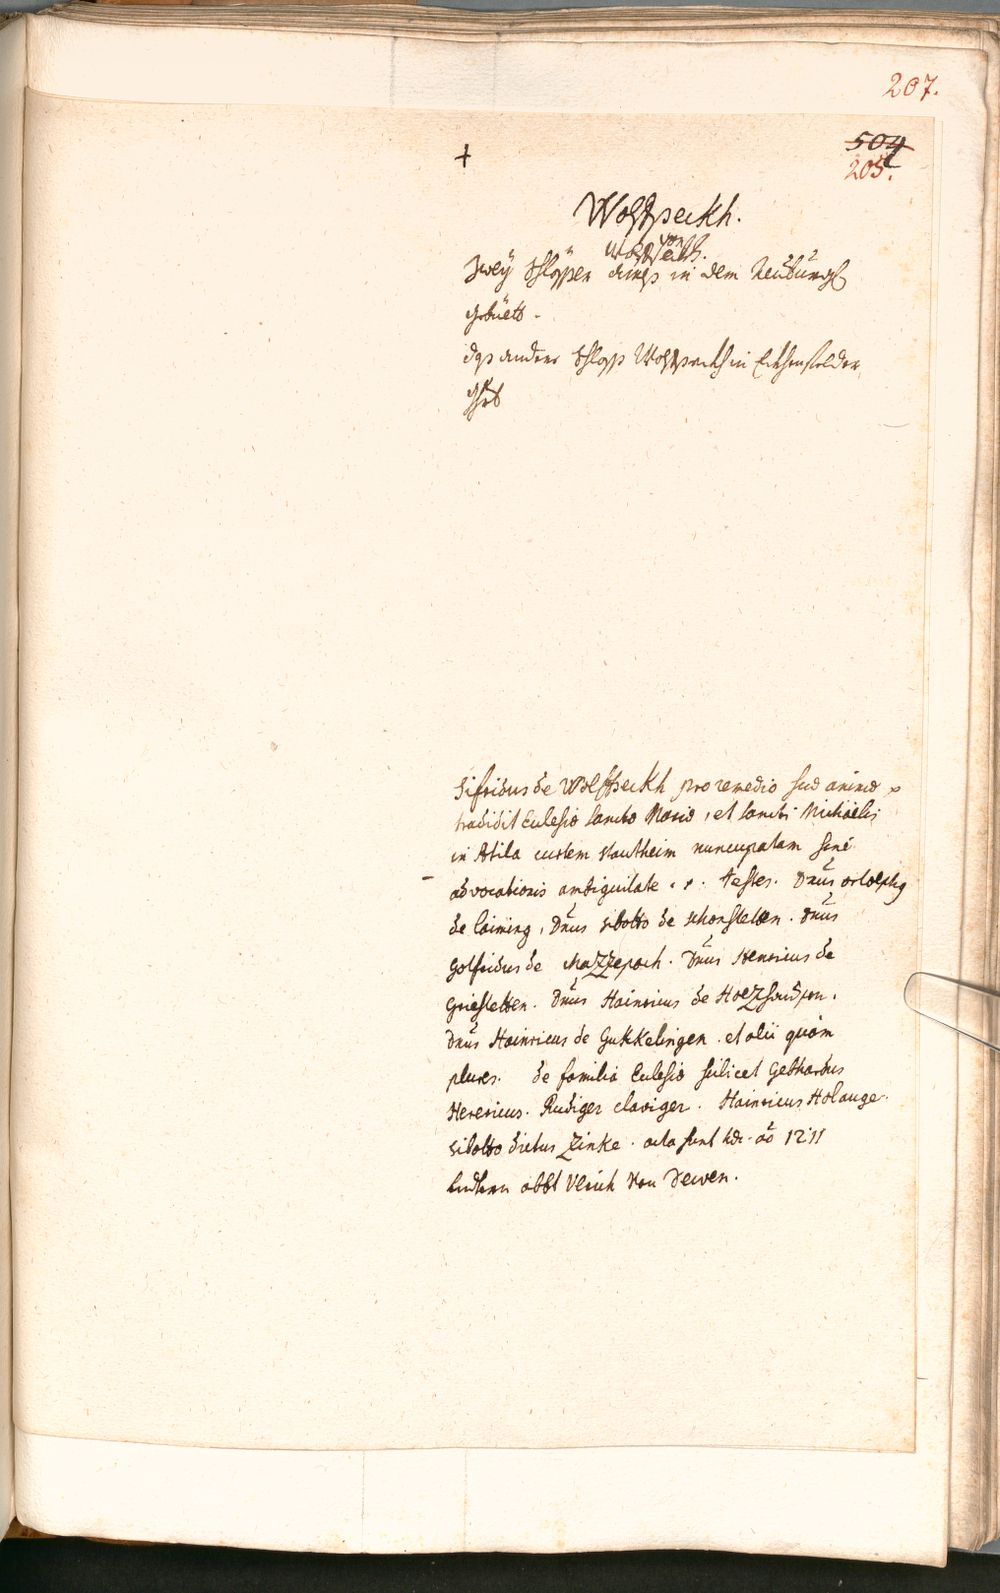 207.
504
205.
+
Wolfspeckh.
Wolfspeckh.
Zwey Schlösser ains in dem Neuburgl
gebüett.
das ander Schloss Wolfspeckh in Eckhenfelder
Ghrt
Sifridus de Wolfspeckh pro remedio suae animae
tradidit Eclesiae Sanctae Mariae, et Sancti Michaelis
in Atila curtem Stautheim nuncupatam sine
advocationis ambiguitate. Testes. Dnus ortolphg
de laiming, Dnus Sibotto de Schonstetten. Dnus
Gotfridus de Mazzepach. Dnus Henricus de
Griestetten. Dnus Hainricus de
Dnus Hainricus de Gukkelingen. et alii quàm
plures. de familia Eclesiae scilicet Gebhardus
Herericus. Rudiger claviger. Hainricus Holauge.
Sibotto dictus Zinke. acta sunt hec. ao 1211
abbt Ulrich von